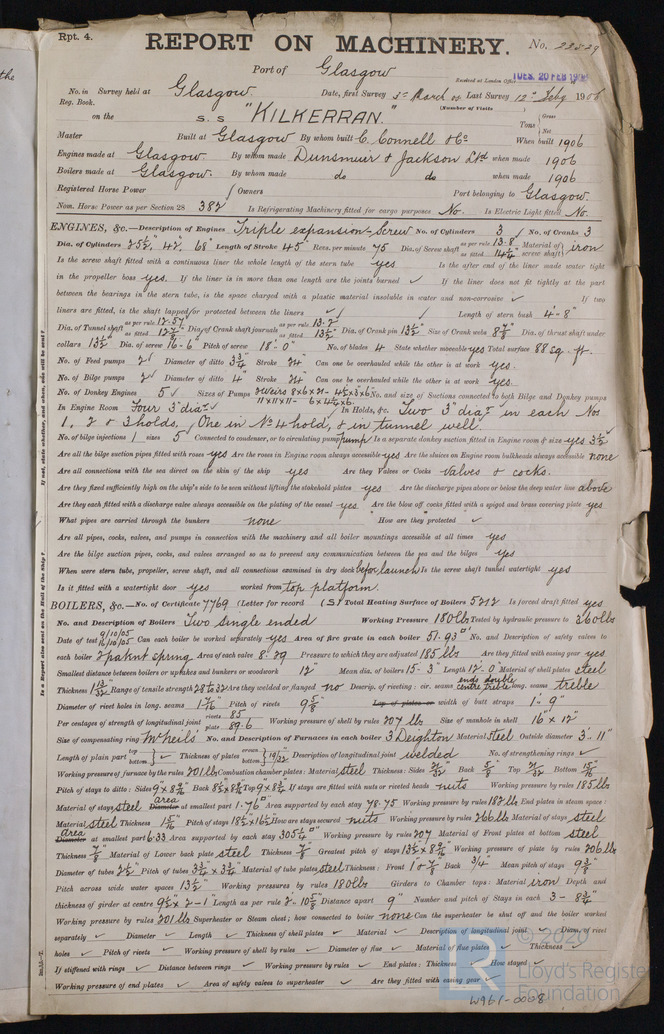 the
Rpt. 4.
REPORT ON MACHINERY.
No. 22529
Port of Glasgow
Received at London Office TUES. 20 FEB 1906
No. in Survey held at Glasgow Date, first Survey 3rd March 05 Last Survey 12th Feby 1906
Reg. Book. (Number of Visits
on the S.S "KILKERRAN." Tons { Gross Net
Master Built at Glasgow By whom built C. Connell & Co When built 1906
Engines made at Glasgow. By whom made Dunsmuir & Jackson Ltd when made 1906
Boilers made at Glasgow. By whom made do do when made 1906
Registered Horse Power Owners Port belonging to Glasgow.
Nom. Horse Power as per Section 28 382 Is Refrigerating Machinery fitted for cargo purposes No. Is Electric Light fitted No.
ENGINES, &c.—Description of Engines Triple expansion-Screw No. of Cylinders 3 No. of Cranks 3
Dia. of Cylinders 25½" 42" 68" Length of Stroke 45" Revs. per minute 75 Dia. of Screw shaft as per rule 13.8" as fitted 14¼" Material of screw shaft iron
Is the screw shaft fitted with a continuous liner the whole length of the stern tube yes Is the after end of the liner made water tight
in the propeller boss yes. If the liner is in more than one length are the joints burned ✓ If the liner does not fit tightly at the part
between the bearings in the stern tube, is the space charged with a plastic material insoluble in water and non-corrosive ✓ If two
liners are fitted, is the shaft lapped or protected between the liners ✓ Length of stern bush 4'-8"
Dia. of Tunnel shaft as per rule 12.57" as fitted 12⅞" Dia. of Crank shaft journals as per rule 13.2" as fitted 13½" Dia. of Crank pin 13½" Size of Crank webs 8⅞" Dia. of thrust shaft under
collars 13½" Dia. of screw 16-6" Pitch of screw 18'-0" No. of blades 4 State whether moveable yes Total surface 88 sq. ft.
No. of Feed pumps 2 Diameter of ditto 3¾" Stroke 24" Can one be overhauled while the other is at work yes.
No. of Bilge pumps 2 Diameter of ditto 4" Stroke 24" Can one be overhauled while the other is at work yes.
No. of Donkey Engines 5 Sizes of Pumps No. and size of Suctions connected to both Bilge and Donkey pumps
In Engine Room Four 3" dia. In Holds, &c. Two 3" dia. in each Nos
1, 2 & 3 holds. One in No 4 hold, & in tunnel well.
No. of bilge injections 1 sizes 5" Connected to condenser, or to circulating pump pump Is a separate donkey suction fitted in Engine room & size yes 3½"
Are all the bilge suction pipes fitted with roses yes Are the roses in Engine room always accessible yes Are the sluices on Engine room bulkheads always accessible none
Are all connections with the sea direct on the skin of the ship yes Are they Valves or Cocks valves & cocks.
Are they fixed sufficiently high on the ship's side to be seen without lifting the stokehold plates yes Are the discharge pipes above or below the deep water line above
Are they each fitted with a discharge valve always accessible on the plating of the vessel yes Are the blow off cocks fitted with a spigot and brass covering plate yes
What pipes are carried through the bunkers none How are they protected ✓
Are all pipes, cocks, valves, and pumps in connection with the machinery and all boiler mountings accessible at all times yes
Are the bilge suction pipes, cocks, and valves arranged so as to prevent any communication between the sea and the bilges yes
When were stern tube, propeller, screw shaft, and all connections examined in dry dock before launch Is the screw shaft tunnel watertight yes
Is it fitted with a watertight door yes worked from top platform.
BOILERS, &c.—No. of Certificate 7769 (Letter for record (S) Total Heating Surface of Boilers 5212 Is forced draft fitted yes
No. and Description of Boilers Two single ended Working Pressure 180 lbs Tested by hydraulic pressure to 360 lbs
Date of test 9/10/05 16/10/05 Can each boiler be worked separately yes Area of fire grate in each boiler 51.93 □' No. and Description of safety valves to
each boiler 2 patent spring Area of each valve 8.29 Pressure to which they are adjusted 185 lbs Are they fitted with easing gear yes
Smallest distance between boilers or uptakes and bunkers or woodwork 12" Mean dia. of boilers 15-3" Length 12'-0" Material of shell plates steel
Thickness 1 13/32 Range of tensile strength 28 to 32 Are they welded or flanged no Descrip. of riveting: cir. seams ends double centre treble long. seams treble
Diameter of rivet holes in long. seams 1 7/16" Pitch of rivets 9⅝" Lap of plates or width of butt straps 1'-9"
Per centages of strength of longitudinal joint rivets 85 plate 89.6 Working pressure of shell by rules 207 lbs Size of manhole in shell 16" x 12"
Size of compensating ring McNeil's No. and Description of Furnaces in each boiler 3 Deighton Material Steel Outside diameter 3-11"
Length of plain part top bottom ✓ Thickness of plates crown bottom 19/32 Description of longitudinal joint welded No. of strengthening rings ✓
Working pressure of furnace by the rules 201 lbs Combustion chamber plates: Material steel Thickness: Sides 21/32 Back 5/8 Top 21/32 Bottom 15/16
Pitch of stays to ditto: Sides 9" x 8¾" Back 8½" x 8¾" Top 9" x 8¾" If stays are fitted with nuts or riveted heads nuts Working pressure by rules 185 lbs
Material of stays steel Diameter area at smallest part 1.76 □" Area supported by each stay 78.75 Working pressure by rules 182 lbs End plates in steam space:
Material steel Thickness 1 5/16 Pitch of stays 18½" x 16½" How are stays secured nuts Working pressure by rules 266 lbs Material of stays steel
Diameter area at smallest part 6.33 Area supported by each stay 305¼ □" Working pressure by rules 207 Material of Front plates at bottom steel
Thickness ⅞" Material of Lower back plate steel Thickness ⅞" Greatest pitch of stays Working pressure of plate by rules 206 lbs
Diameter of tubes 2½" Pitch of tubes 3¾ x 3¾ Material of tube plates steel Thickness: Front 1" & ⅞ Back ¾" Mean pitch of stays 9⅜"
Pitch across wide water spaces 13½" Working pressures by rules 180 lbs Girders to Chamber tops: Material iron Depth and
thickness of girder at centre 9½ x 2-1" Length as per rule 2'.10⅝ Distance apart 9" Number and pitch of Stays in each 3 - 8¾"
Working pressure by rules 201 lbs Superheater or Steam chest; how connected to boiler none Can the superheater be shut off and the boiler worked
separately ✓ Diameter ✓ Length ✓ Thickness of shell plates ✓ Material ✓ Description of longitudinal joint ✓ Diam. of rivet
holes ✓ Pitch of rivets ✓ Working pressure of shell by rules ✓ Diameter of flue ✓ Material of flue plates ✓ Thickness
If stiffened with rings ✓ Distance between rings ✓ Working pressure by rules ✓ End plates: Thickness ✓ How stayed ✓
Working pressure of end plates ✓ Area of safety valves to superheater ✓ Are they fitted with easing gear ✓
W961-0068
© 2020
LR
Lloyd's Register
Foundation
Is a Report also sent on the Hull of the Ship?
If not, state whether, and when, one will be sent?